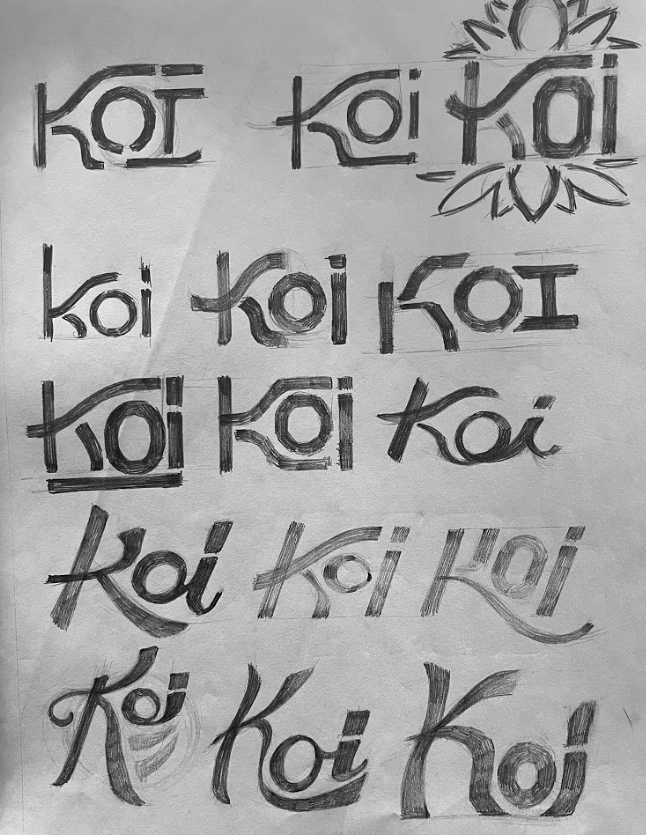 KOI Koi Koi
Koi Koi KOI
Koi Koi Koi
Koi Koi Koi
Koi Koi Koi